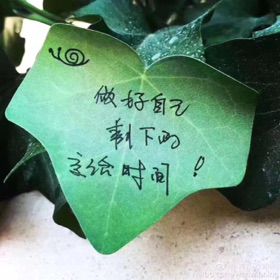 做好自己
剩下的
交给时间！